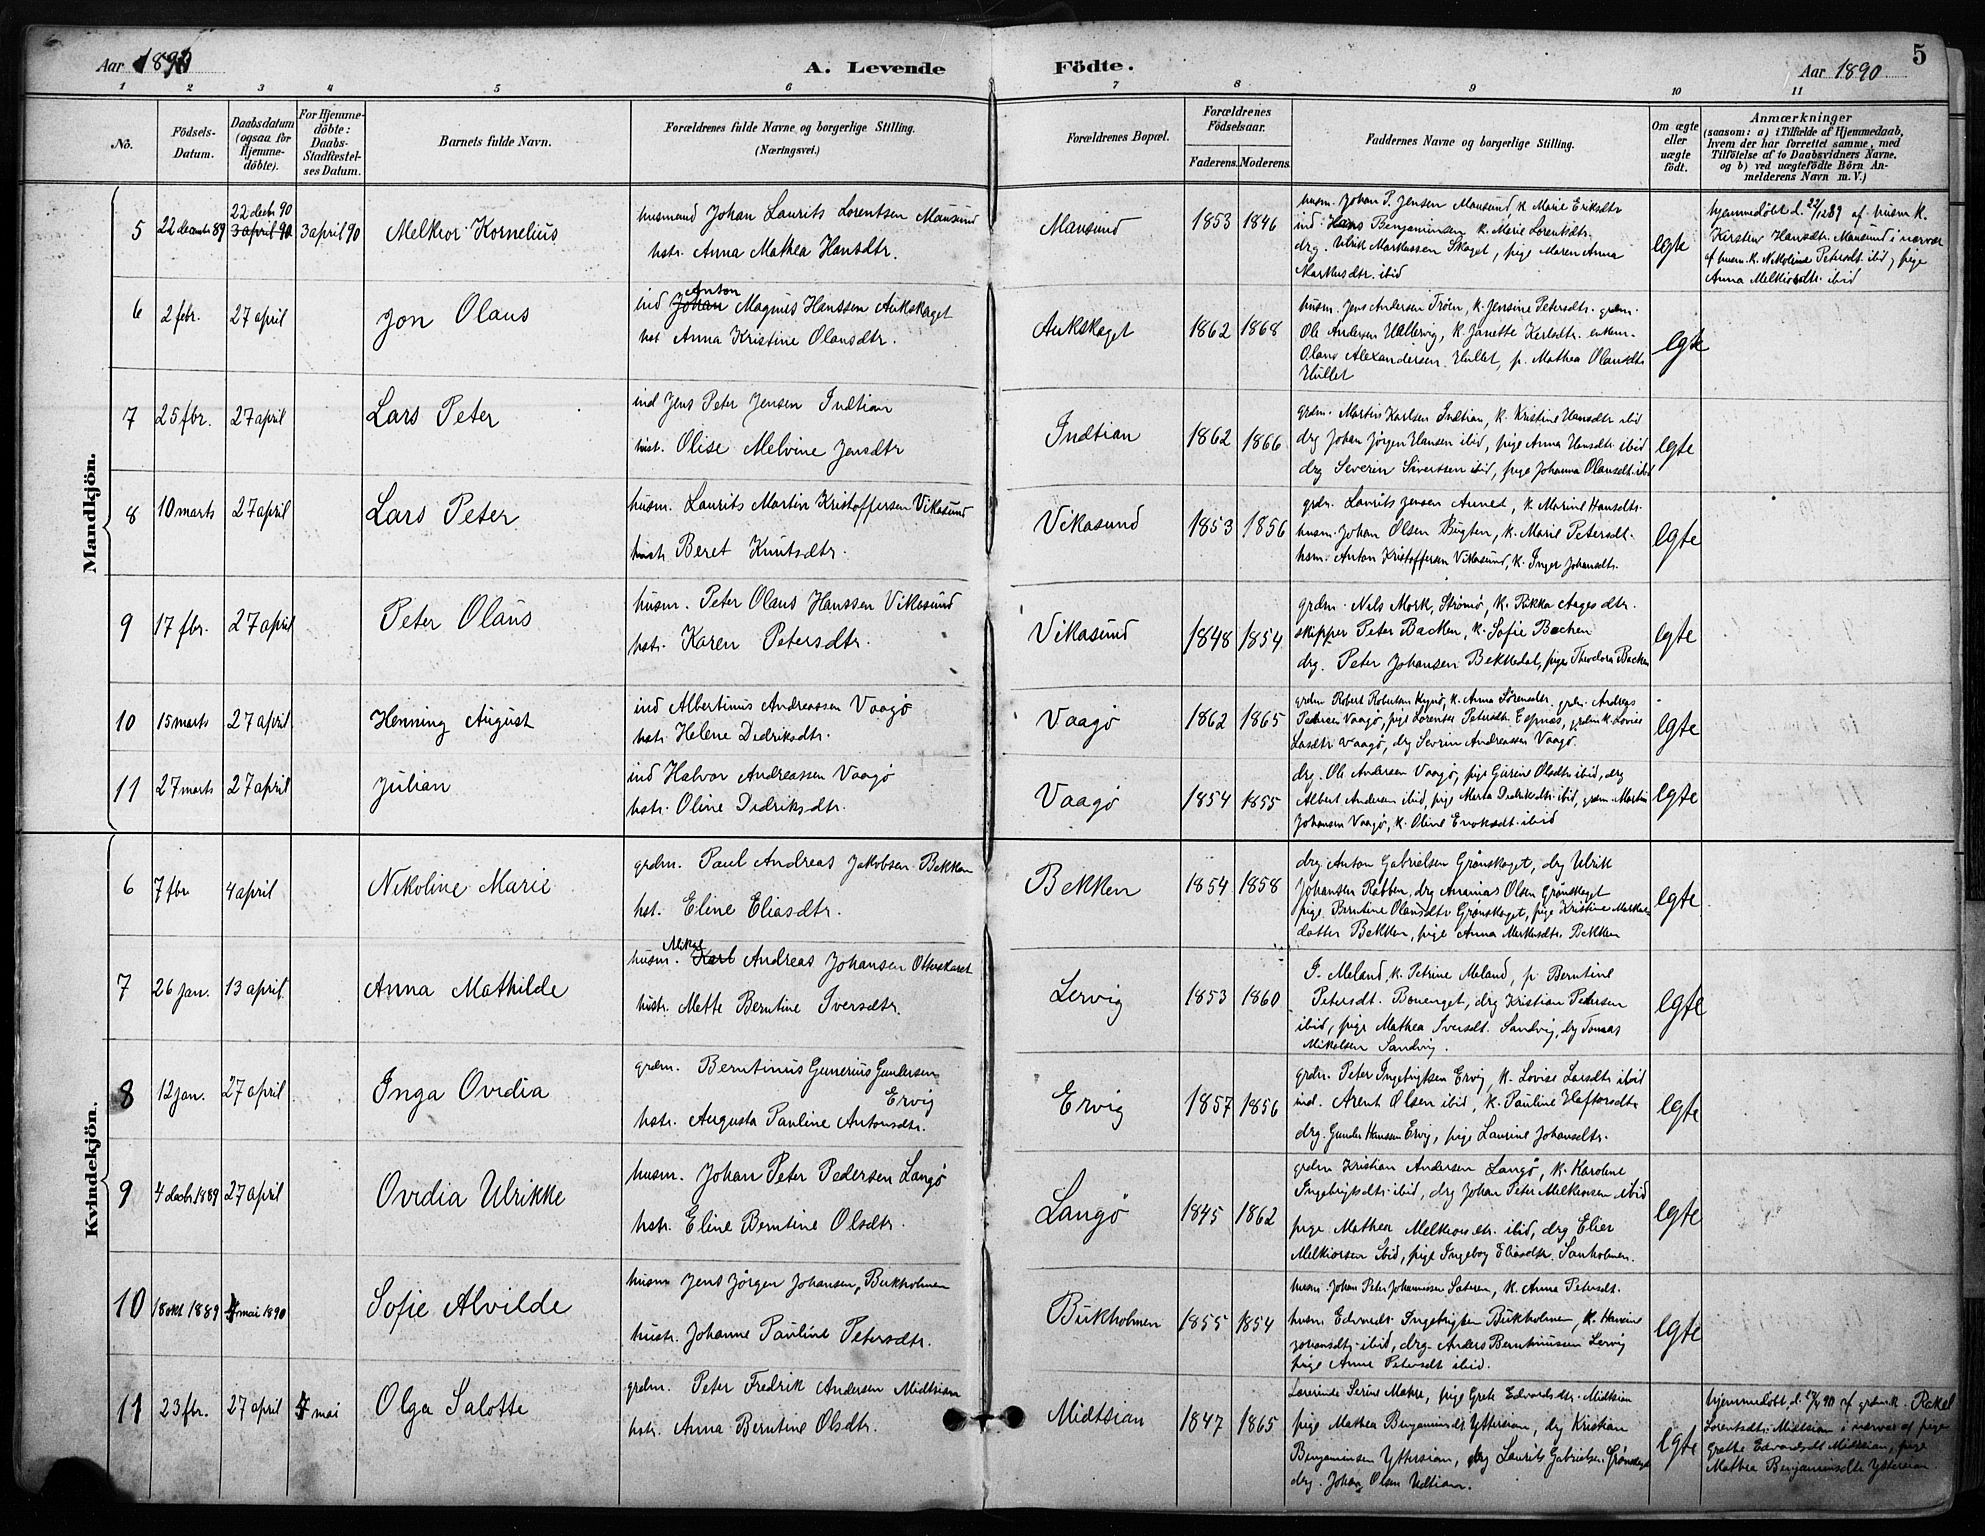 Aar 1890
A. Levende Födte.
Aar 1890
5
1 2 3 4 5 6 7 8 9 10 11
No.
Födsels-Datum.
Daabsdatum (ogsaa for Hjemme-döbte).
For Hjemme-döbte: Daabs-Stadfæstel-ses Datum.
Barnets fulde Navn.
Forældrenes fulde Navne og borgerlige Stilling.
(Næringsvei.)
Forældrenes Bopæl.
Forældrenes Födselsaar.
Faderens. Moderens.
Faddernes Navne og borgerlige Stilling.
Om ægte eller uægte födt.
Anmærkninger
(saasom: a) i Tilfælde af Hjemmedaab,
hvem der har forrettet samme, med
Tilföielse af to Daabsvidners Navne,
og b) ved uægtefödte Börn An-
melderens Navn m. V.)
Mandkjön.
5 22 decbr 89 22 decbr 90 3 april 90 3 april 90 Melkior Kornelius
husmand Johan Laurits Lorentsen Mausund
hstr. Anna Mathea Hansdtr.
Mausund 1853 1846
husm. Johan P. Jensen Mausund, k. Marie Eriksdtr
ind Hans Benjaminsen k. Marie Lorentsdtr.
drg. Ulrik Markussen Skaget, pige Maren Anna
Markusdtr. ibid
egte
hjemmedøbt d. 22/12 89 af husm. k.
Kirsten Hansdtr. Mausund i nærvær
af husm. k. Nikoline Petersdt. ibid, pige
Anna Melkiorsdtr. ibid
6 2 febr. 27 april Jon Olaus
ind Johan Anton Magnus Hanssen Aukskaget
hst Anna Kristine Olausdtr.
Aukskaget 1862 1868
husm. Jens Andersen Trøen, k. Jensine Petersdtr. grdm.
Ole Andersen Uttervig, k. Janette Kerlsdtr. enkem.
Olaus Alexandersen Hullet, p. Mathea Olausdtr.
Hullet
egte
7 25 fbr. 27 april Lars Peter
ind Jens Peter Jensen Indtian
hust. Olise Melvine Jensdtr
Indtian 1862 1866
grdm. Martin Karlsen Indtian, k. Kristine Hansdtr ibid
drg Johan Jørgen Hansen ibid, pige Anna Hansdtr. ibid
drg Severin Sivertsen ibid, pige Johanna Olausdtr. ibid
egte
8 10 marts 27 april Lars Peter
husm. Laurits Martin Kristoffersen Vikasund
hustr. Beret Knutsdtr.
Vikasund 1853 1856
grdm. Laurits Jensen Arnet, k. Marine Hansdtr.
husm. Johan Olsen Bugten, k. Marie Petersdt.
hsm. Anton Kristoffersen Vikasund, k. Inger Johansdtr.
egte
9 17 fbr. 27 april Peter Olaus
husm. Peter Olaus Hanssen Vikasund
hstr. Karen Petersdtr.
Vikasund 1848 1854
grdm. Nils Mork, Strømø, k. Rikka Aagesdtr.
skipper Peter Backen, k. Sofie Backen
drg. Peter Johansen Bekkedal, pige Theodora Backen
egte
10 15 marts 27 april Henning August
ind Albertinus Andreassen Vaagø
hstr. Helene Didriksdtr.
Vaagø 1862 1865
grdm Robert Robertsen, k. Anna Sørensdtr. grdm. Andreas
Petersen Vaagø, pige Lorentse Petersdtr. Espnæs, grdm k. Lovise
Larsdtr Vaagø, drg Sevrin Andreassen Vaagø.
egte
11 27 marts 27 april Julian
ind Halvor Andreassen Vaagø
hstr. Oline Didriksdtr.
Vaagø 1854 1855
drg. Ole Andersen Vaagø, pige Gurine Olsdtr. ibid, drg
Albert Andersen ibid, pige Marta Didriksdtr. ibid, grdm. Martin
Johansen Vaagø, k. Oline Enoksdtr. ibid
egte
Kvindekjön.
6 7 fbr 4 april Nikoline Marie
grdm. Paul Andreas Jakobsen Bekken
hst. Eline Eliasdtr.
Bekken 1854 1858
drg Anton Gabrielsen Grønskaget, drg Ulrik
Johansen Rabben, drg Ananias Olsen Grønskaget
pige Berntine Olausdtr Grønskaget, pige Kristine Markus-
datter Bekken, pige Anna Markusdtr. Bekken
egte
7 26 jan. 13 april Anna Mathilde
husm. Karl Mikal Andreas Johansen Otterskaret
hustr. Mette Berntine Iversdtr.
Lervig 1853 1860
I. Meland, k. Petrine Meland, p. Berntine
Petersdt. Bonenget, drg Kristian Petersen
ibid, pige Mathea Iversdt. Sandvig, drg Tomas
Mikalsen Sandvig.
egte
8 12 jan. 27 april Inga Ovidia
grdm. Berntinus Gunerius Gundersen
Ervig
hstr. Augusta Pauline Antonsdtr.
Ervig 1857 1856
grdm. Peter Ingebrigtsen Ervig, k. Lovise Larsdtr ibid
ind. Arent Olsen ibid, k. Pauline Haftorsdtr
drg. Gunder Hanssen Ervig, pige Laurine Johansdtr.
egte
9 4 decbr. 1889 27 april Ovidia Ulrikke
husm. Johan Peter Pedersen Langø
hstr. Eline Berntine Olsdtr.
Langø 1845 1862
grdm Kristian Andersen Langø, k. Karoline
Ingebrigtsdtr. ibid, drg Johan Peter Melkiorsen ibid
pige Mathea Melkiorsdtr. ibid, drg Elier
Melkiorsen ibid, pige Ingeborg Eliasdtr. Sanholmen.
egte
10 18 okt 1889 4 mai 1890 Sofie Alvilde
husm Jens Jørgen Johansen, Bukholmen
hustr. Johanne Pauline Petersdtr.
Bukholmen 1855 1854
husm. Johan Peter Johannessen Sæteren, k. Anna Petersdt.
husm. Edvard Ingebrigtsen Bukholmen, k. Hansine
Johansdtr. ibid, drg. Anders Berntinussen Lervig
pige Anne Petersdt ibid.
egte
11 23 fbr. 27 april 4 mai Olga Salotte
grdm. Peter Fredrik Andersen Midtsian
hstr. Anna Berntine Olsdtr.
Midtsian 1847 1865
Lærerinde Serine Moære, pige Grete Edvardsdtr. Midtsian
pige Mathea Benjaminsdt Yttersian, drg Kristian
Benjaminsen Yttersian, drg Laurits Gabrielsen Grønskaget
drg. Johan Olsen Udtian.
egte
hjemmedøbt d. 27/4 90 af grdm k. Rakel
Lorentsdtr. Midtsian i nærvær af pige
Grethe Edvardsdt Midtsian, pige
Mathea Benjaminsdtr Yttersian.